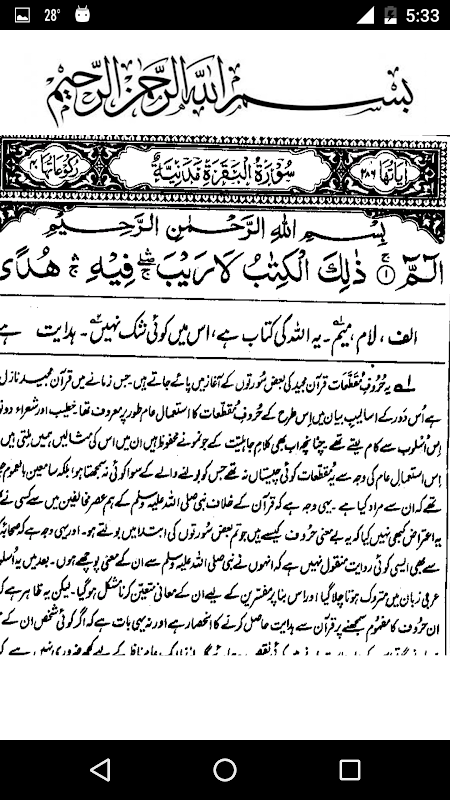 28° 5:33
بسم الله الرحمن الرحيم
اٰیاتها ۲۸۶ سُوْرَةُ الْبَقَرَةِ مَدَنِيَّةٌ رکوعاتها ۴۰
بِسْمِ اللهِ الرَّحْمٰنِ الرَّحِيْمِ
الٓمّٓ ۚ ۱ ذٰلِكَ الْكِتٰبُ لَا رَيْبَ فِيْهِ هُدًى
الف، لام، میم۔ یہ اللہ کی کتاب ہے، اس میں کوئی شک نہیں۔ ہدایت ہے
۱؎ یہ حُروفِ مُقَطَّعات قرآن مجید کی بعض سُورتوں کے آغاز میں پائے جاتے ہیں۔ جس زمانے میں قرآن مجید نازل
ہے اُس دَور کے اسالیبِ بیان میں اِس طرح کے حُروفِ مُقطّعات کا استعمال عام طور پر معروف تھا۔ خطیب اور شعراء دونو
اِس اُسْلوب سے کام لیتے تھے۔ چنانچہ اب بھی کلامِ جاہلیّت کے جو نمونے محفوظ ہیں ان میں اس کی مثالیں ہمیں ملتی ہیں
اِس استعمالِ عام کی وجہ سے یہ مُقطعات کوئی چیستاں نہ تھے جس کو بولنے والے کے سوا کوئی نہ سمجھتا ہو، بلکہ سامعین بالعموم
تھے کہ ان سے مراد کیا ہے۔ یہی وجہ ہے کہ قرآن کے خلاف نبی صلی اللہ علیہ وسلم کے ہم عصر مخالفین میں سے کسی نے
یہ اعتراض کبھی نہیں کیا کہ یہ بے معنی حُروف کیسے ہیں جو تم بعض سُورتوں کی ابتدا میں بولتے ہو۔ اور یہی وجہ ہے کہ صحابہ
سے بھی ایسی کوئی روایت منقول نہیں ہے کہ انہوں نے نبی صلی اللہ علیہ وسلم سے ان کے معنی پوچھے ہوں۔ بعد میں یہ اُسلو
عربی زبان میں متروک ہوتا چلا گیا اور اس بنا پر مفسّرین کے لیے ان کے معانی متعیّن کرنا مشکل ہو گیا۔ لیکن یہ ظاہر ہے کہ
ان حُروف کا مفہُوم سمجھنے پر قرآن سے ہدایت حاصل کرنے کا انحصار ہے اور نہ یہی بات ہے کہ اگر کوئی شخص ان کے